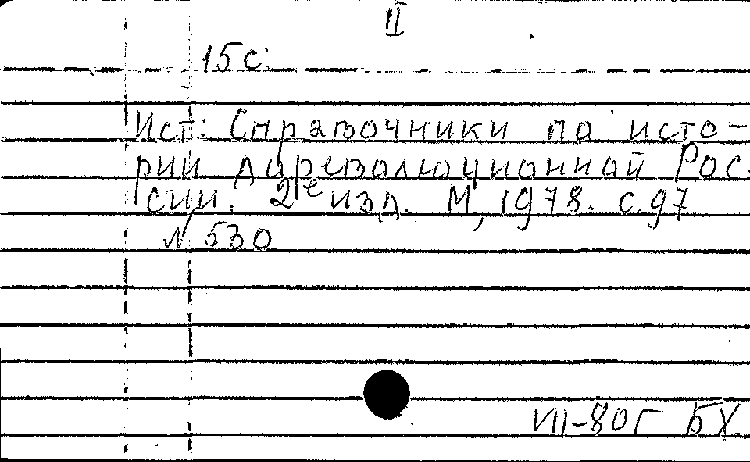 II
15 с.
Ист.: Справочники по исто-
рии дореволюционной Рос-
сии. 2е изд. М, 1978. с. 97
№ 530
VII-80г БХ